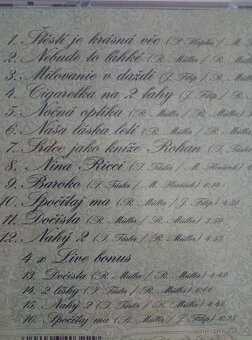 1. Štěstí je krásná věc (P. Hapka / M.
2. Nebude to ľahké (R. Müller / R. M
3. Milovanie v daždi (J. Filip / R.
4. Cigaretka na 2 ťahy (J. Filip / R.
5. Nočná optika (R. Müller / R. Müller
6. Naša láska letí (R. Müller / R. Müller
7. Srdce jako kníže Rohan (I. Tásler
8. Nina Ricci (I. Tásler / M. Horáček)
9. Baroko (I. Tásler / M. Horáček)
10. Spočítaj ma (R. Müller / J. Filip) 4:31
11. Dočisťa (R. Müller / R. Müller) 3:59
12. Nahý 2 (I. Tásler / R. Müller) 4:53
4 x Live bonus
13. Dočisťa (R. Müller / R. Müller) 4:42
14. 2 (I. Tásler / R. Müller)
15. Nahý 2 (I. Tásler / R. Müller) 4:53
16. Spočítaj ma (R. Müller / J. Filip)